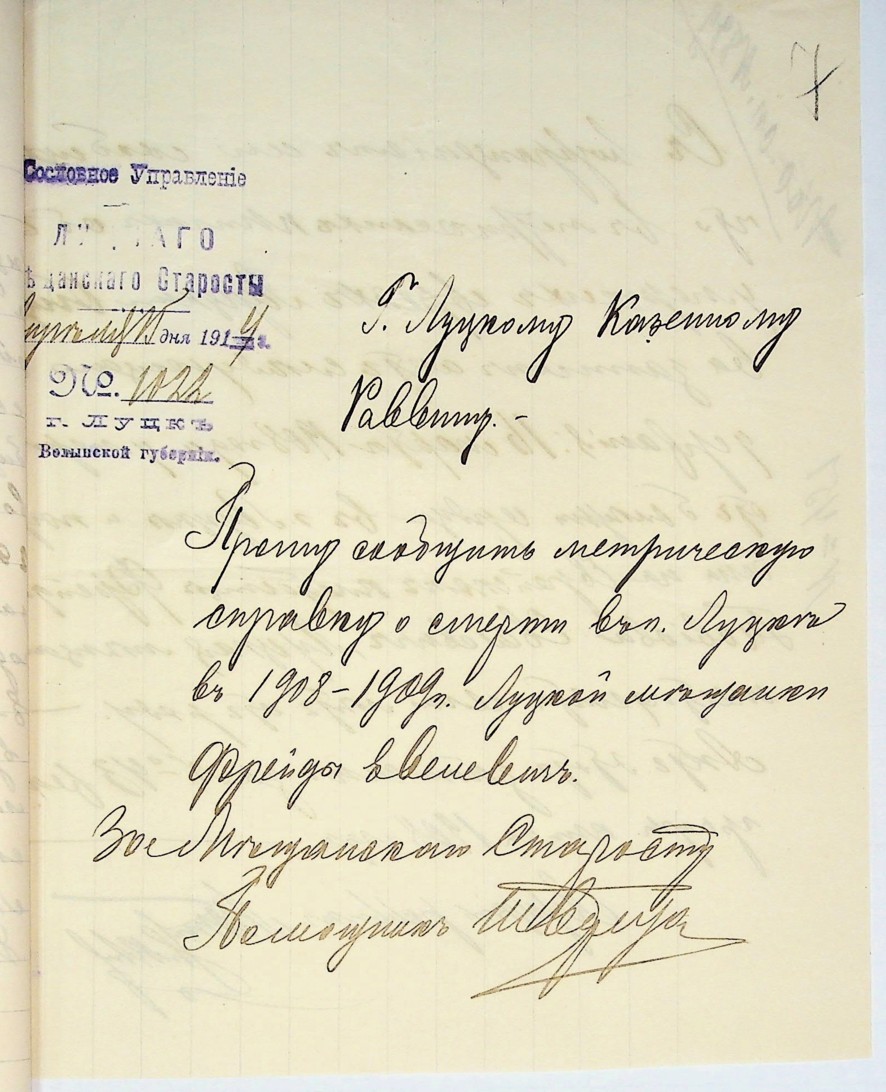 7
Сословное Управленіе
ЛУ АГО
щанскаго Старосты
дня 1914 г.
№. 1022
г. ЛУЦКЪ
Волынской губерніи.
Г. Луцкому Казенному
Раввину.-
Прошу сообщить метрическую
справку о смерти въ г. Луцкѣ
въ 1908-1909г. Луцкой мѣщанки
Фрейды
За Мѣщанскаго Старосту
Помощникъ